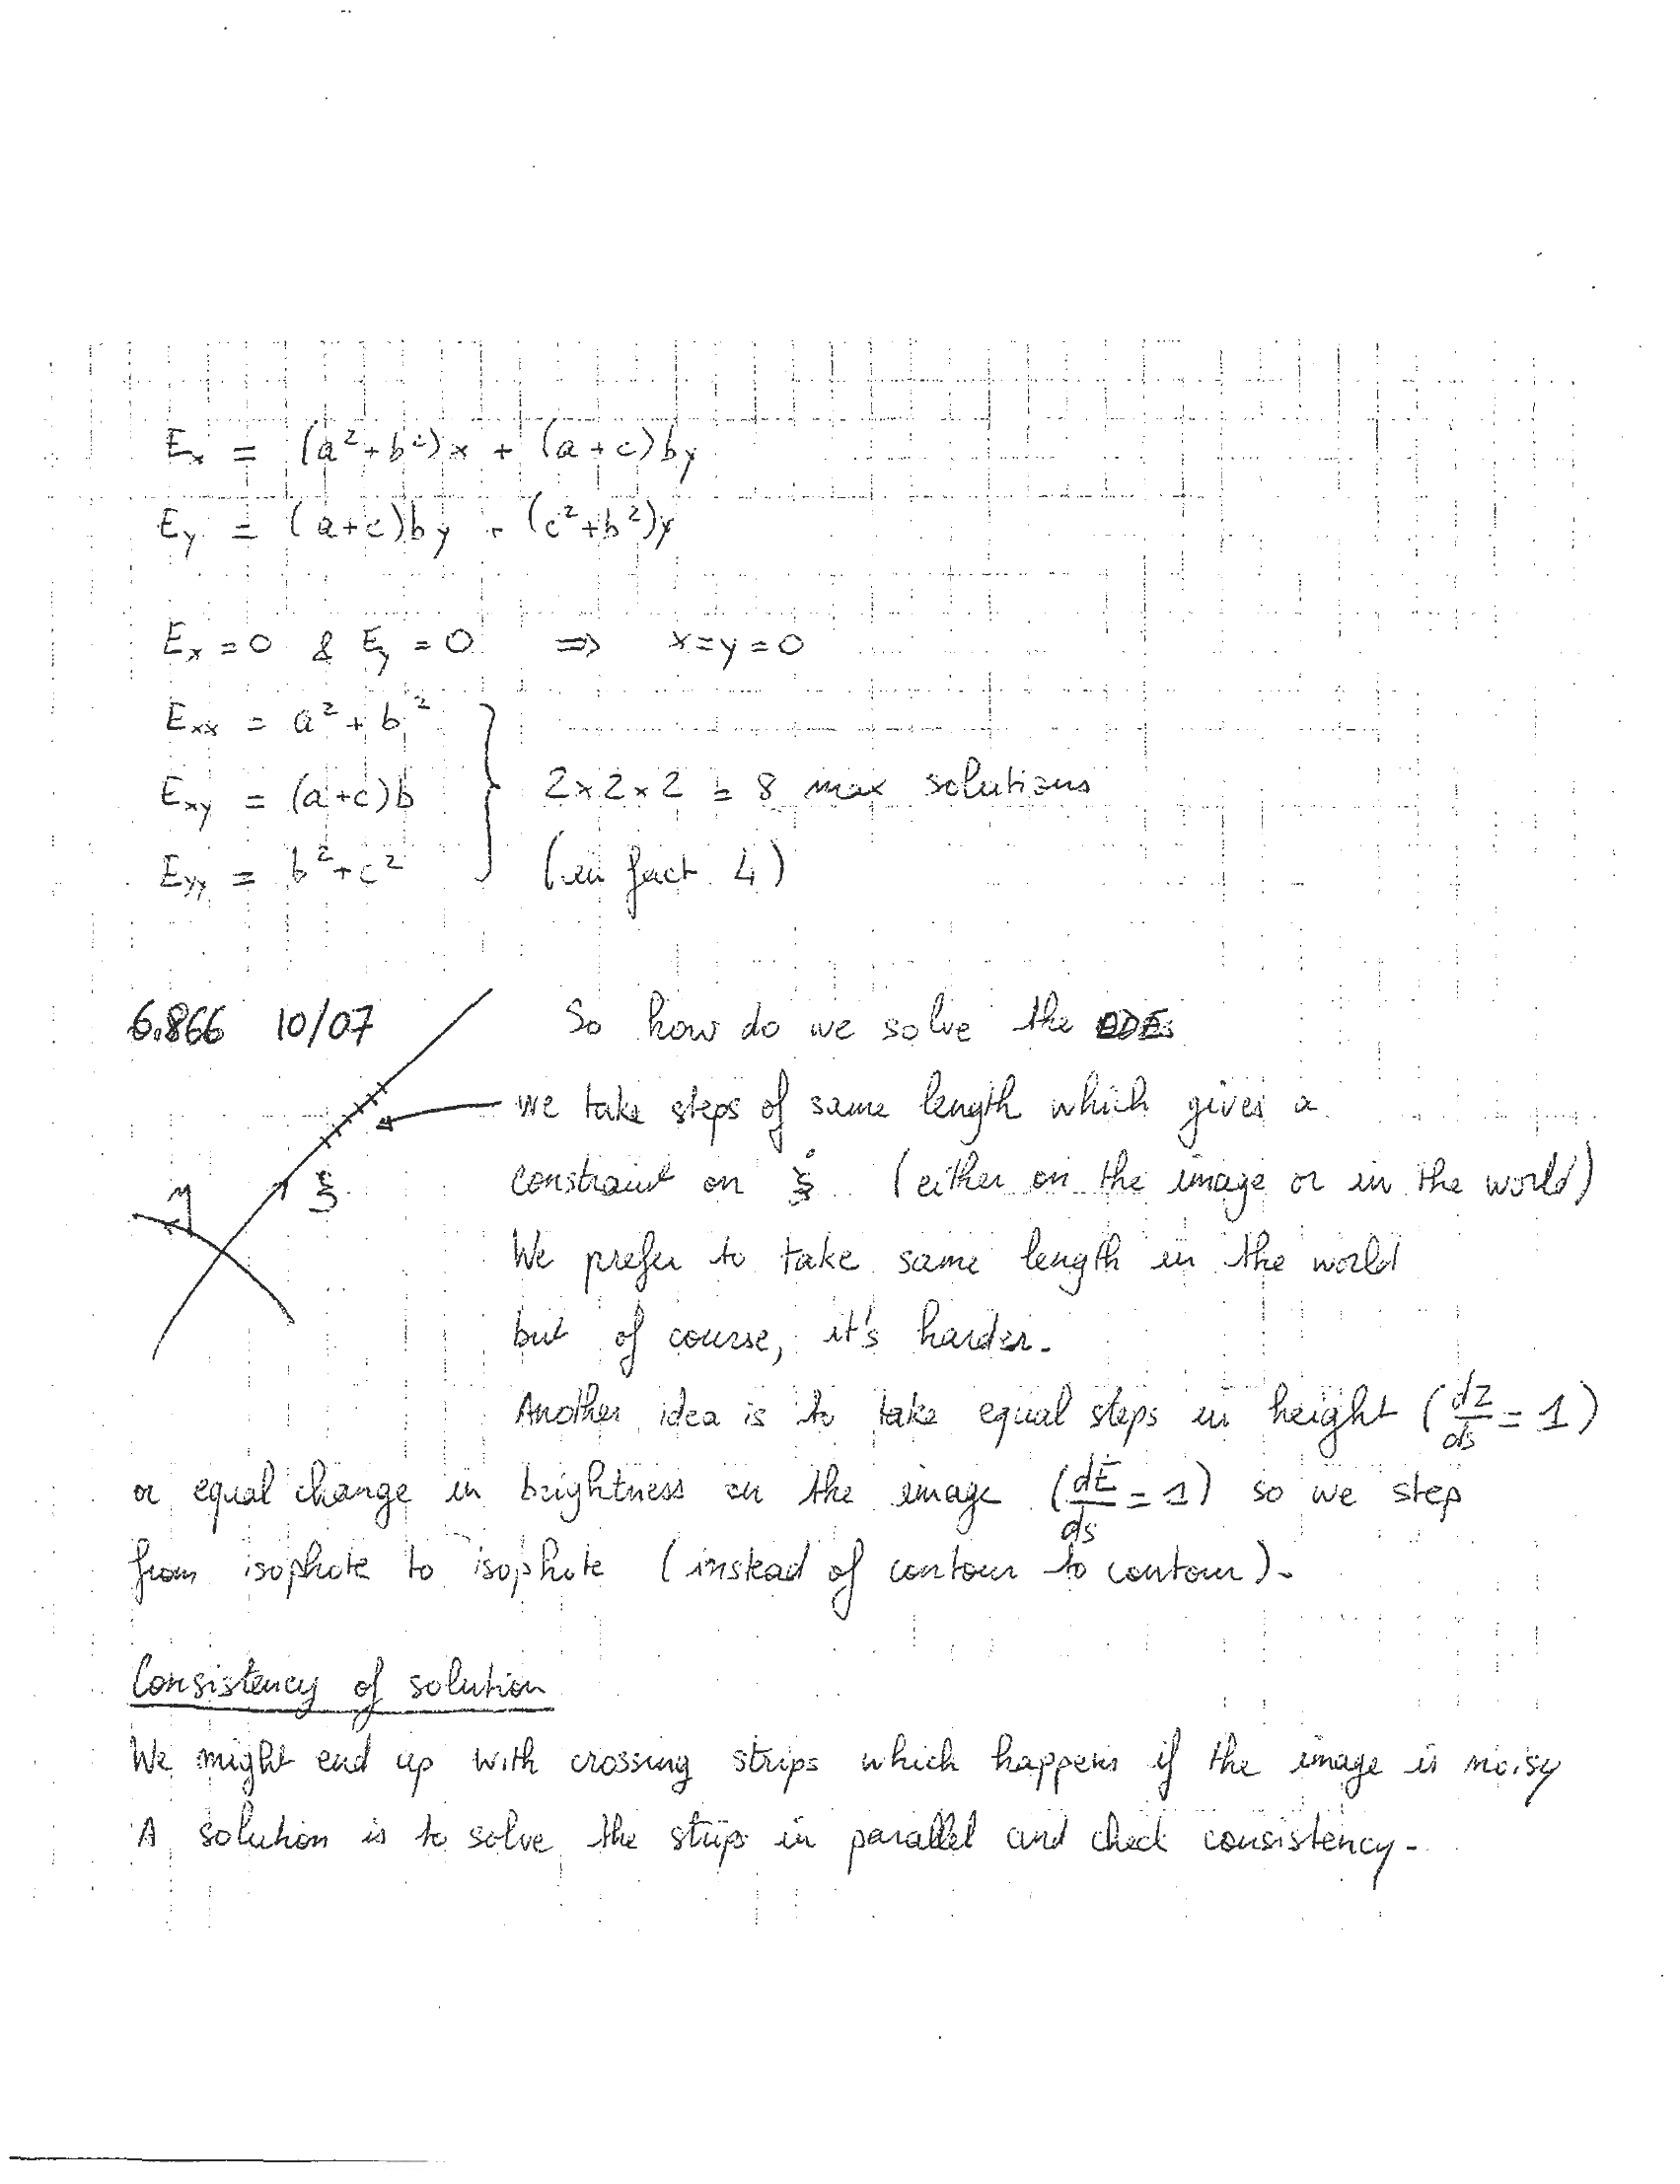 Eₓ = (a²+b²)x + (a+c)by
E_y = (a+c)by + (c²+b²)y
Eₓ=0 & E_y=0 ⇒ x=y=0
E_xx = a²+b²
E_xy = (a+c)b
E_yy = b²+c²
2×2×2 = 8 max solutions
(in fact 4)
6.866 10/07
So how do we solve the ODEs
we take steps of same length which gives a
constraint on ξ̇ (either on the image or in the world)
η
ξ
We prefer to take same length in the world
but of course, it's harder.
Another idea is to take equal steps in height (dz/ds = 1)
or equal change in brightness on the image (dE/ds = 1) so we step
from isophote to isophote (instead of contour to contour).
Consistency of solution
We might end up with crossing strips which happens if the image is noisy
A solution is to solve the strips in parallel and check consistency.